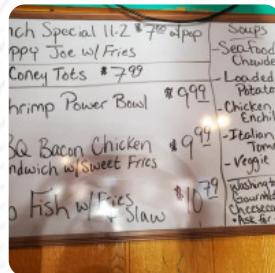 nch Special 11-2 $7⁰⁰ w/pop
ppy Joe w/ Fries
Coney Tots $7⁹⁹
hrimp Power Bowl $9⁹⁹
BQ Bacon Chicken $9⁹⁹
ndwich w/Sweet Fries
Fish w/ Fries $10⁷⁹
+ Slaw
Soups
-Seafood
Chowde
-Loaded
Potato
-Chicken
Enchil
-Italian
Tom
-Veggie
Washingto
Gourmet
Cheeseca
*Ask for